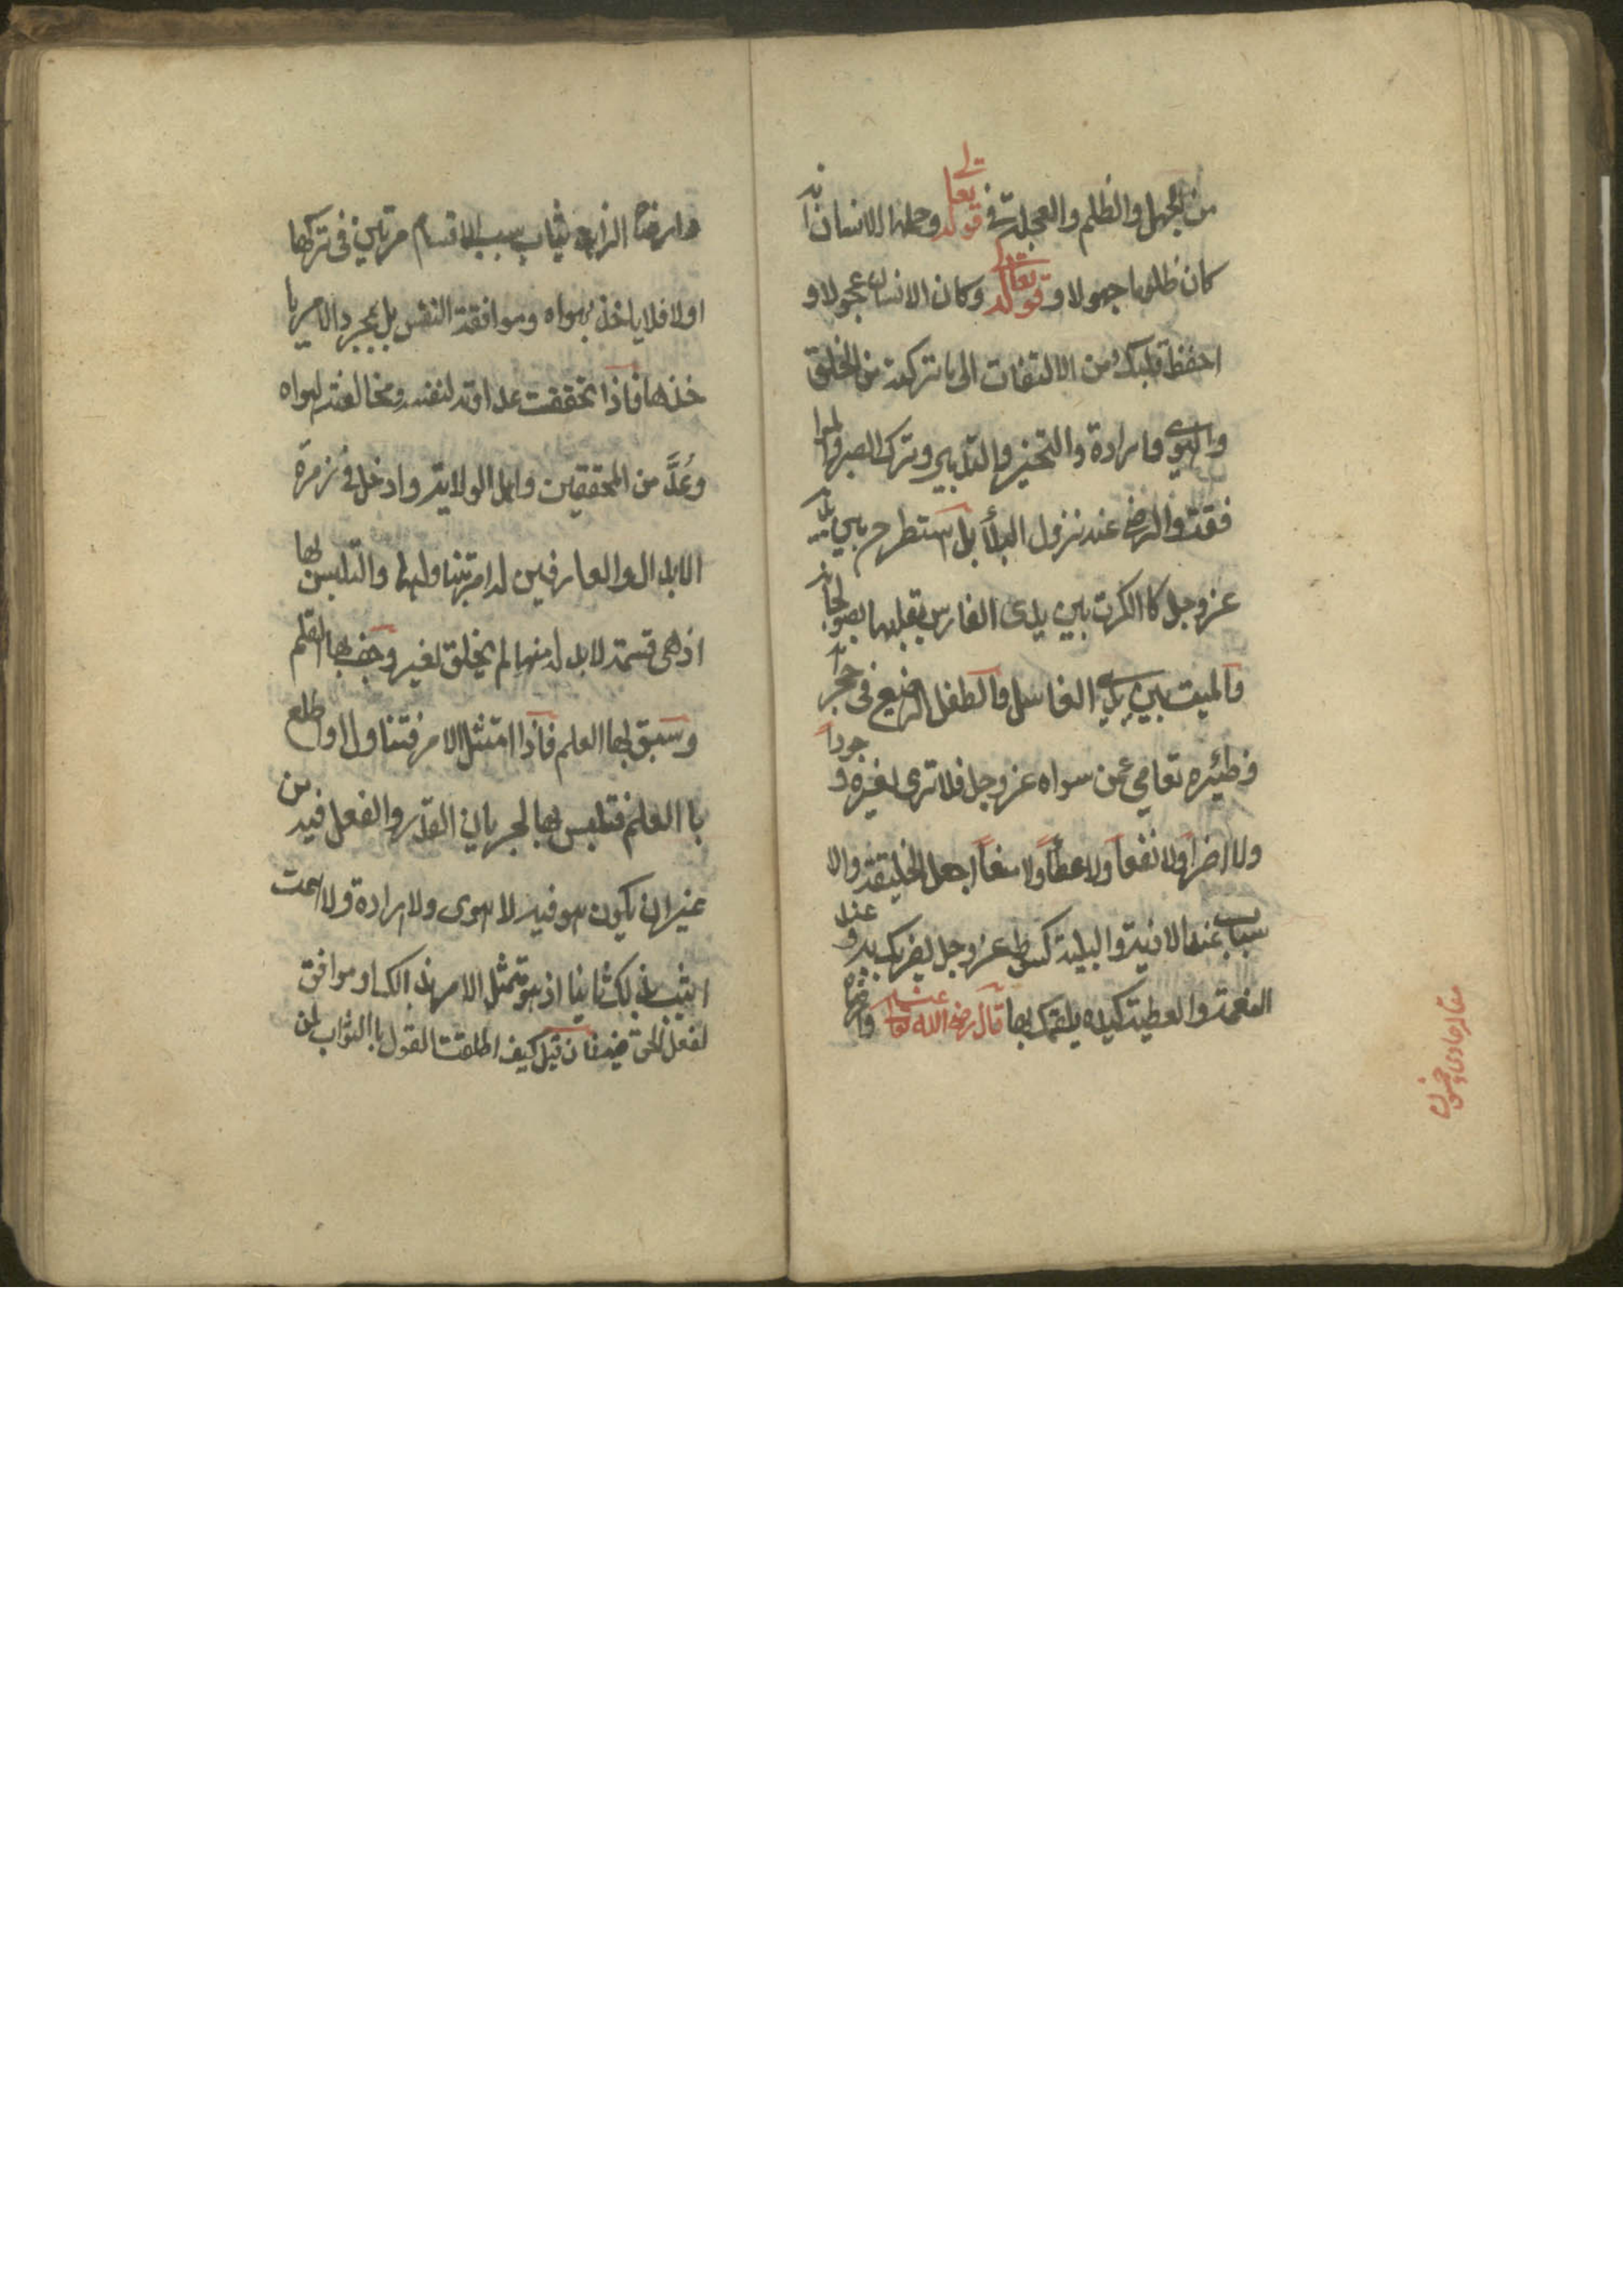 من الجهل والظلم والعجلة في قوله تعالى وحملها الانسان انه
كان ظلوما جهولا و قوله تعالى وكان الانسان عجولا و
احفظ قلبك من الالتفات الى ما تركته من الخلق
والهوى والارادة والتخير والتدبير وترك الصبر والموا
فقة والرضى عند نزول البلأ بل استطرح بين يديه
عز وجل كا الكرة بين يدى الفارس يقلبها بصولجانه
والميت بين يدي الغاسل والطفل الرضيع فى حجر امه
وظئيره تعامي عمن سواه عز وجل فلا ترى لغيره وجوداً
ولا ضراً ولا نفعاً ولا عطأً ولا منعاً اجعل الخليقة والا
سباب عند الاذية والبلية كسوطه عز وجل يضربك به وعند
النعمة والعطية كيده يلقمك بها قال رضى الله تعالى عنه وارضاه
مقاله حادى وخمسون
وارضاه الزاهد يثاب بسبب الاقسام مرتين فى تركها
اولا فلا ياخذ بهواه وموافقة النفس بل بمجرد الامر يا
خذها فاذا تحققت عداوته لنفسه ومخالفته لهواه
وعُدَّ من المحققين واهل الولاية وادخل فى زمرة
الابدال والعارفين له امر بتناولها والتلبس بها
اذ هى قسمته لا بد له منها لم يخلق لغيره وجف بها القلم
وسبق بها العلم فاذا امتثل الامر فتناول او اطلع
با العلم فتلبس بها لجريان القدر والفعل فيه من
غير ان يكون هو فيه لا هوى ولا ارادة ولا همت
اثيب بذلك ثانيا اذ هو ممتثل الامر بذالك او موافق
لفعل الحق فيه فان قيل كيف اطلقت القول با الثواب لمن